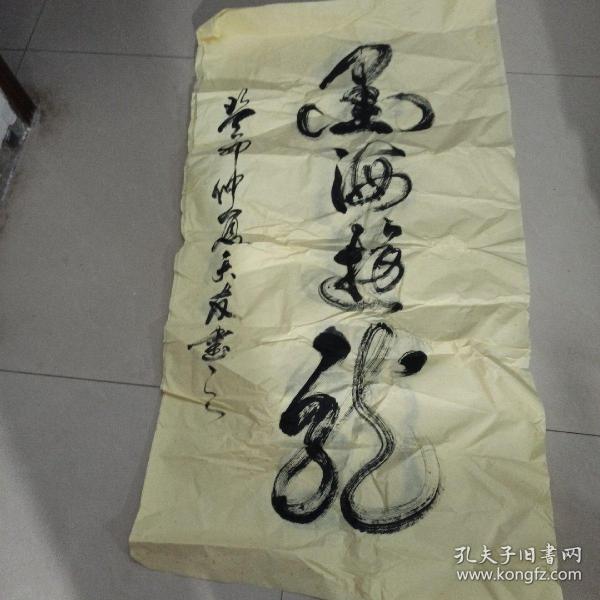 墨海游龙
癸卯仲夏天友书之
孔夫子旧书网
www.kongfz.com